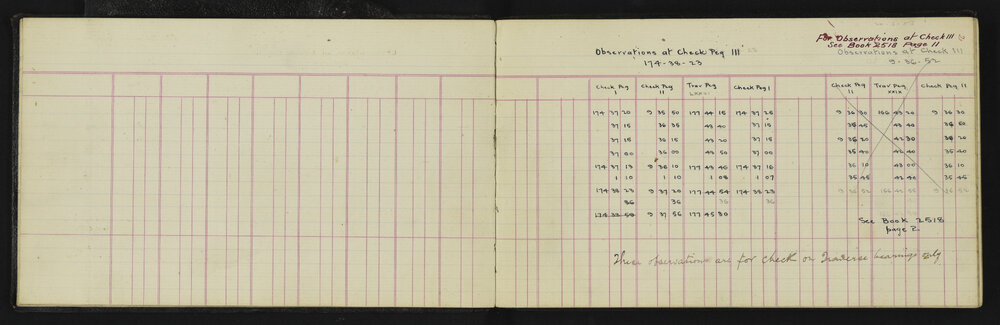 For Observations at Check III
See Book 2518 Page 11
Observations at Check Peg III
Observations at Check III
174-38-23
9-36-52
Check Peg I Check Peg II Trav Peg LXXXI Check Peg I Check Peg II Trav Peg XXIX Check Peg II
174 37 20 9 35 50 177 44 15 174 37 25 9 36 30 166 43 20 9 36 30
37 15 36 35 43 40 37 15 35 45 43 40 35 50
37 15 36 15 43 20 37 15 9 35 20 42 30 36 20
37 00 36 00 43 50 37 00 35 40 42 40 35 40
174 37 13 9 36 10 177 43 46 174 37 16 36 10 43 00 36 10
1 10 1 10 1 08 1 07 35 45 42 40 35 45
174 38 23 9 37 20 177 44 54 174 38 23 9 36 52 166 42 55 9 36 52
36 36 36 36
174 38 59 9 37 56 177 45 30
See Book 2518
page 2.
These observations are for check on Traverse bearings only